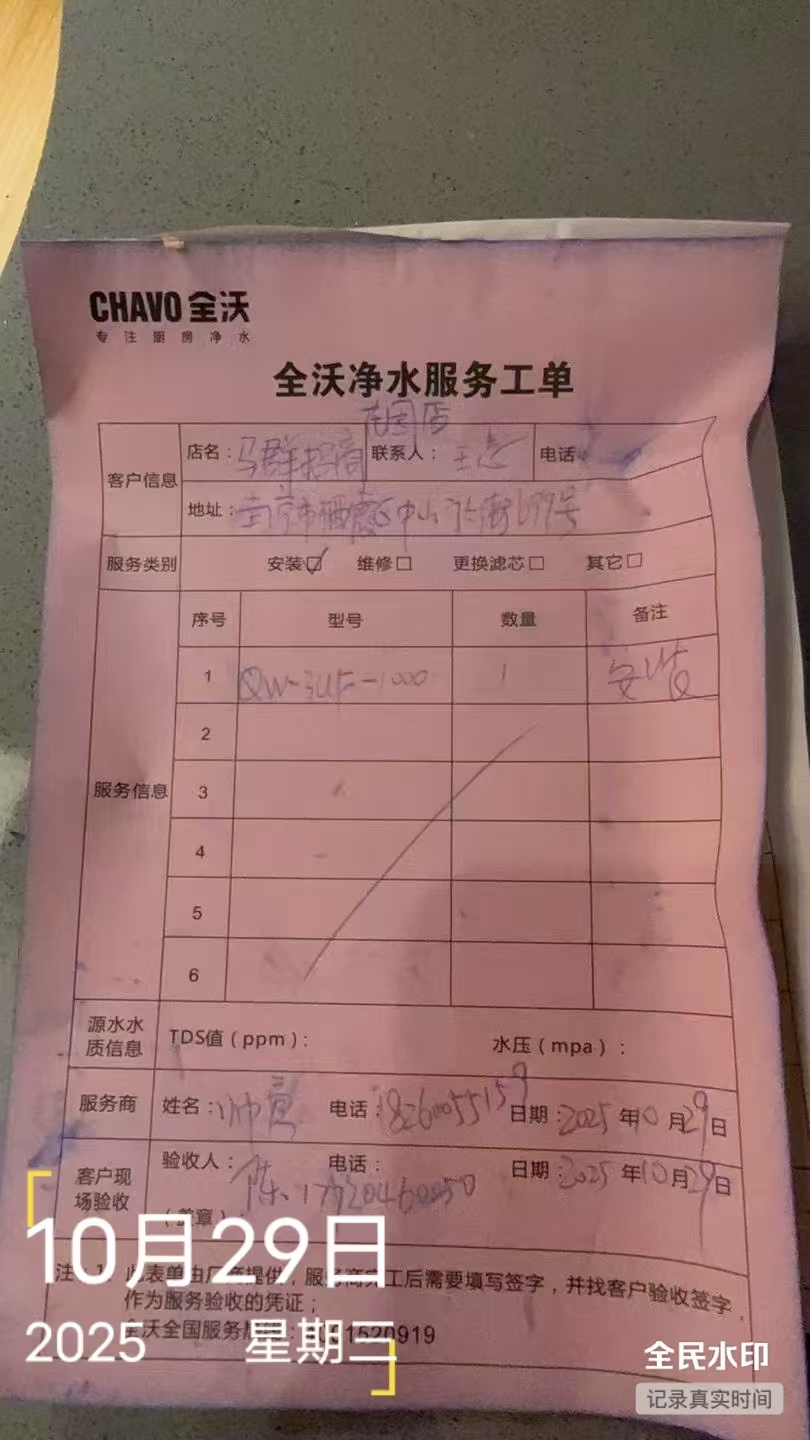 CHAVO 全沃
专注厨房净水
全沃净水服务工单
客户信息 店名：马群招商 联系人：王 电话
地址：南京市栖霞区中山 街699号
服务类别 安装☑ 维修□ 更换滤芯□ 其它□
服务信息 序号 型号 数量 备注
1 QW-3UF-1000 1 安装
2
3
4
5
6
源水水质信息 TDS值（ppm）： 水压（mpa）：
服务商 姓名：帅 电话：18260055159 日期：2025年10月29日
客户现场验收 验收人：陈 电话： 日期：2025年10月29日
（盖章）：
注：1、此表单由厂商提供，服务商完工后需要填写签字，并找客户验收签字，
作为服务验收的凭证；
全沃全国服务 1520919
10月29日
2025 星期三
全民水印
记录真实时间